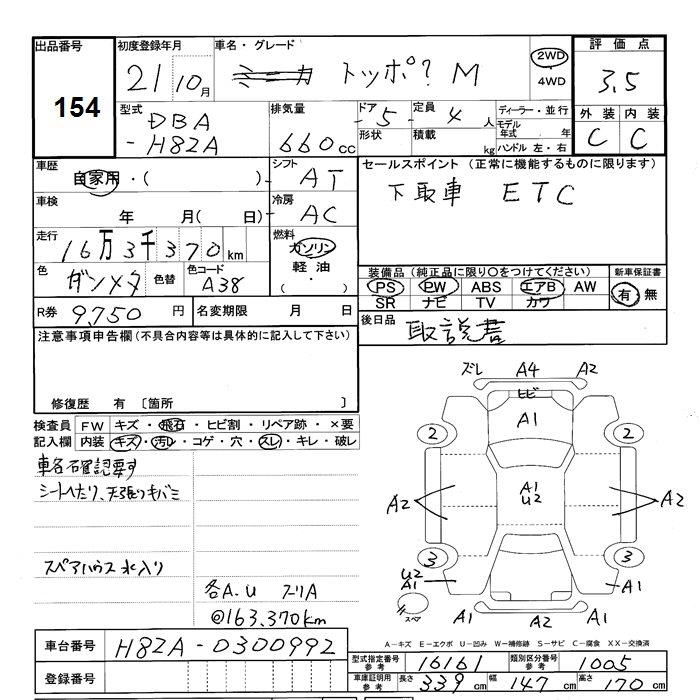 出品番号
154
初度登録年月
21 10月
車名・グレード
トッポ? M
2WD
4WD
評価点
3.5
型式
DBA
-H82A
排気量
660cc
ドア
5
形状
定員
4人
積載
kg
ディーラー・並行
モデル年式 年
ハンドル 左・右
外装 内装
C C
車歴
自家用・( )
シフト
AT
車検
年 月( 日)
冷房
AC
走行
16万3千370km
燃料
ガソリン
軽油
( ・ )
色
ガンメタ
色替
色コード
A38
R券
9,750円
名変期限 月 日
セールスポイント (正常に機能するものに限ります)
下取車 ETC
装備品 (純正品に限り○をつけてください)
PS PW ABS エアB AW
SR ナビ TV カワ
新車保証書
有 無
後日品
取説書
注意事項申告欄 (不具合内容等は具体的に記入して下さい)
修復歴 有 〔箇所 〕
検査員記入欄
FW キズ・飛石・ヒビ割・リペア跡・×要
内装 キズ・汚レ・コゲ・穴・スレ・キレ・破レ
車名確認要す
シートへたり、天張りキバミ
スペアハウス水入り
各A.U スリA
@163,370km
ズレ A4 A2
ヒビ
A1
2 2
A2 A1 U2 A2
3 3
U2
A1 A1
スペア A1 A2
A-キズ E-エクボ U-凹み W-補修跡 S-サビ C-腐食 XX-交換済
車台番号
H82A-0300992
登録番号
型式指定番号 参考
16161
類別区分番号 参考
1005
車庫証明用 参考
長さ 339cm 幅 147cm 高さ 170cm